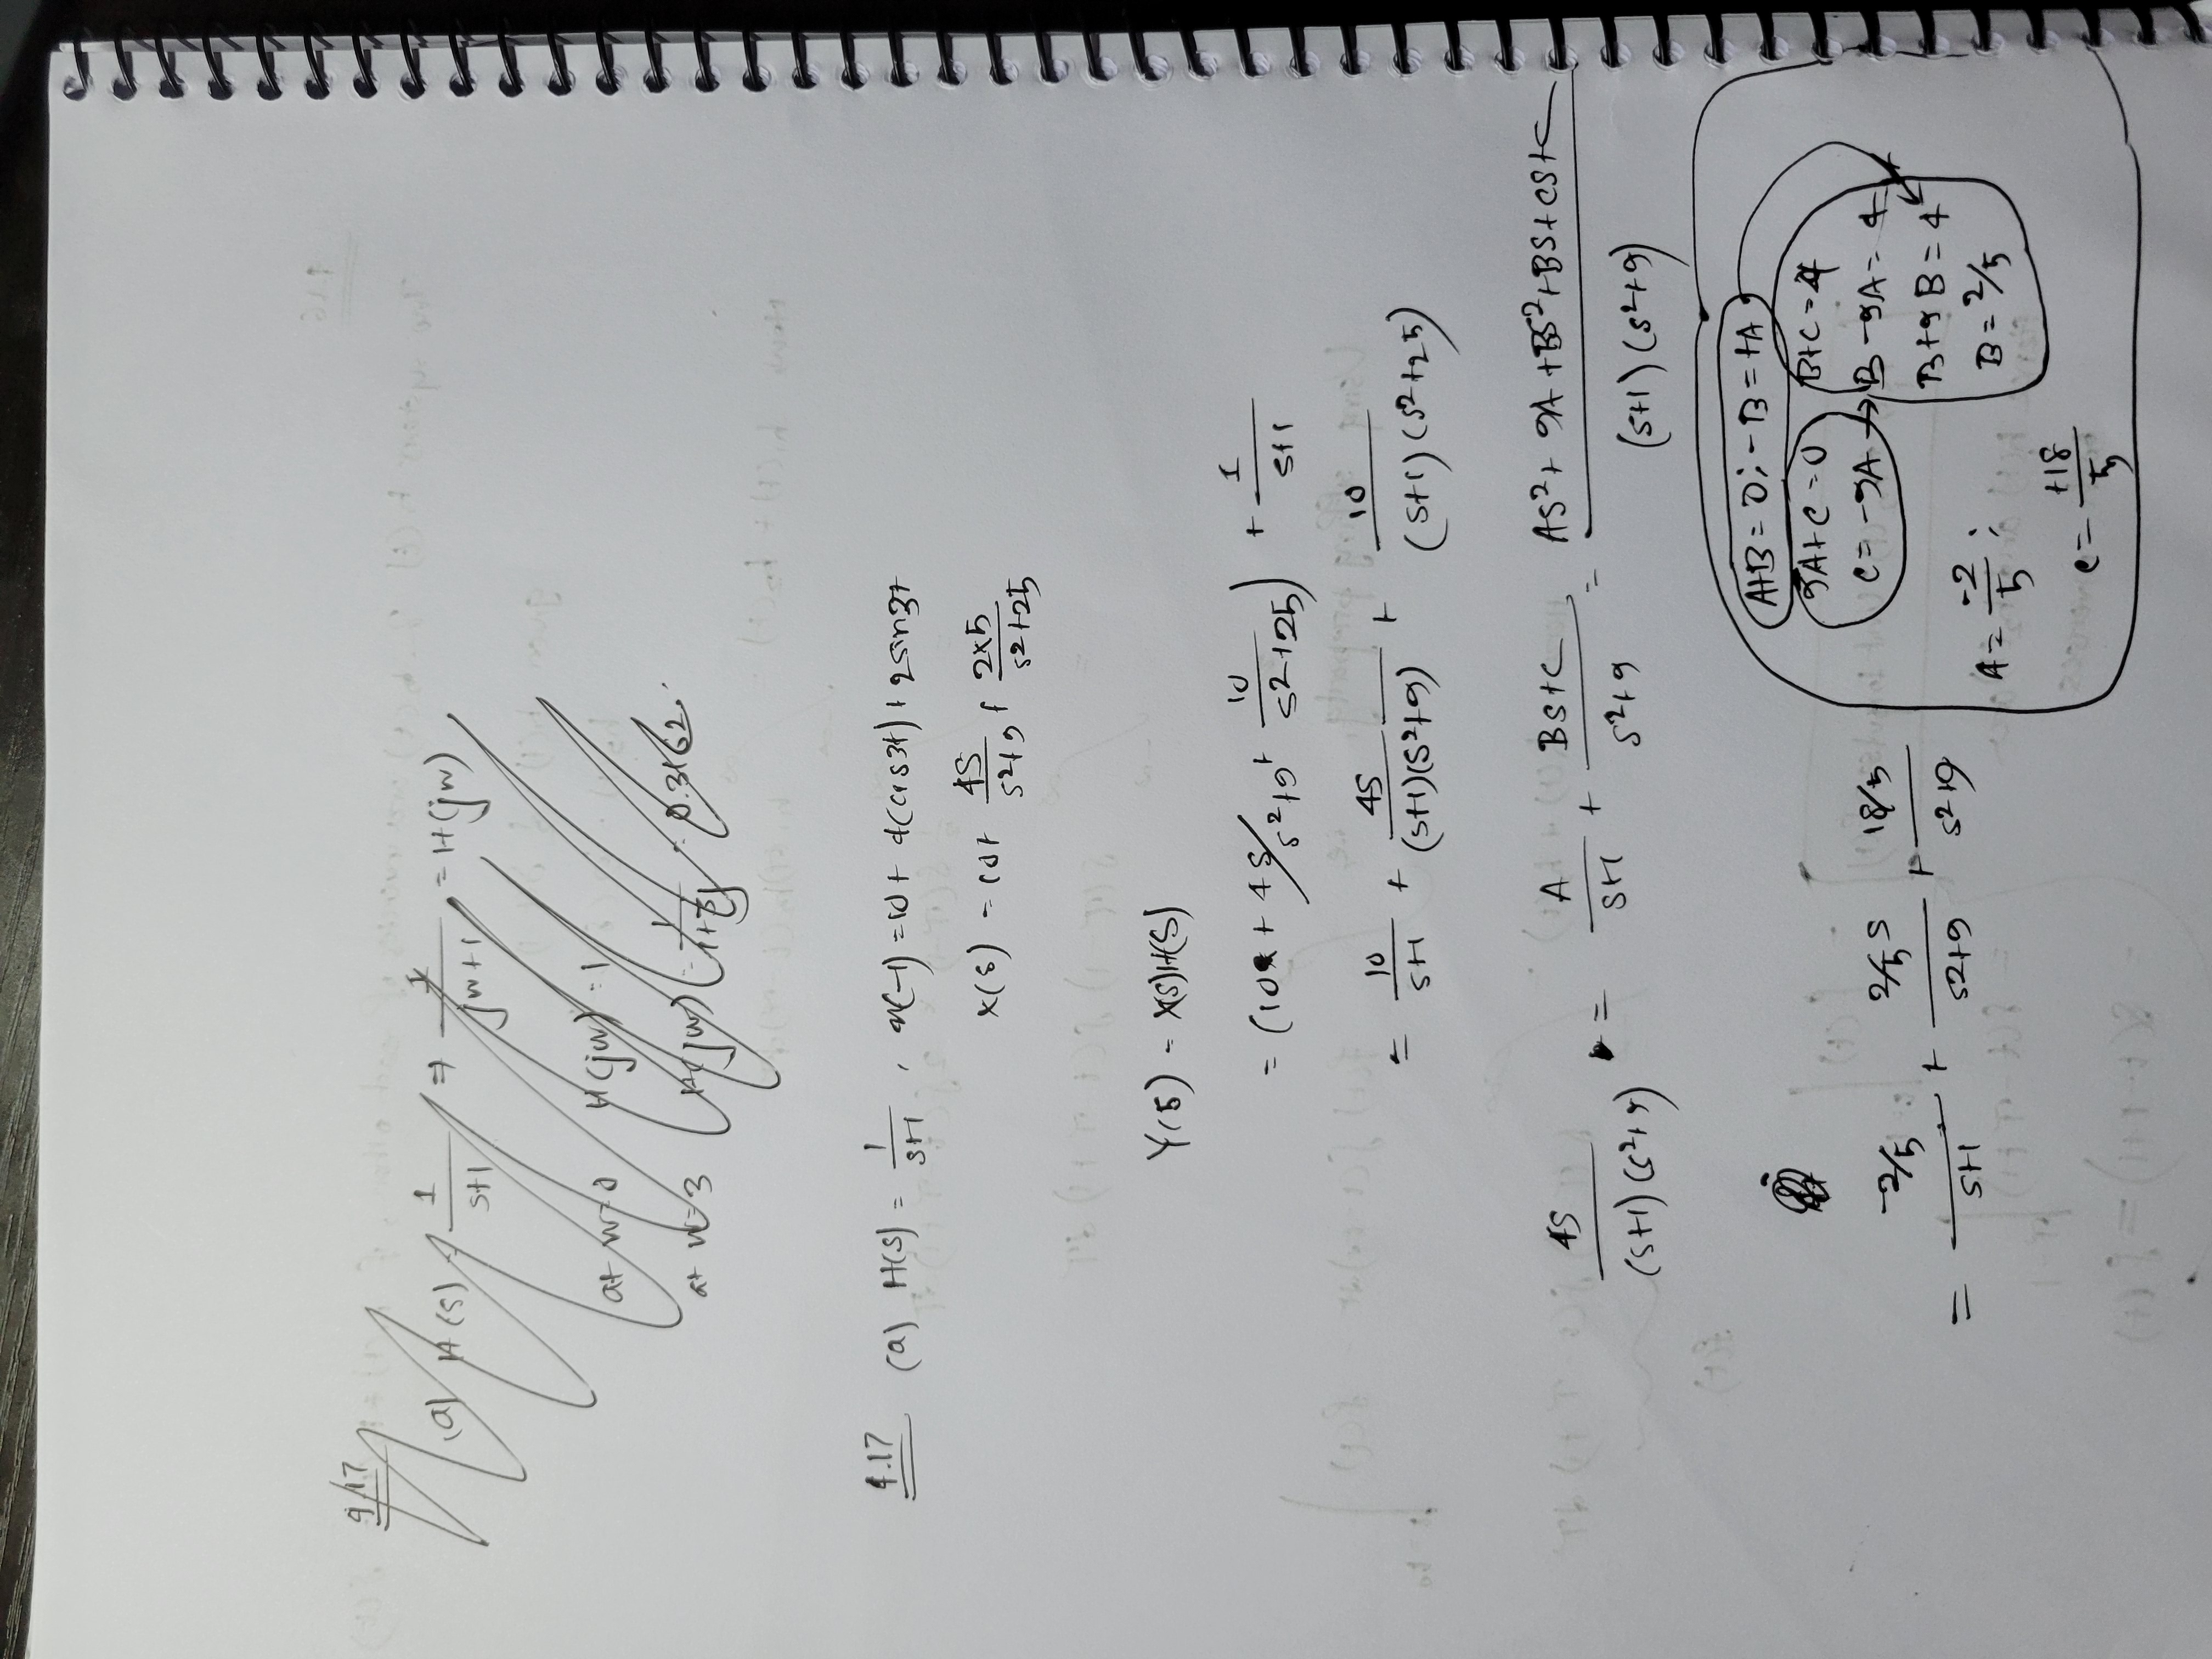 4.17
(a) H(s) = 1/(s+1) ⇒ 1/(jw+1) = H(jw)
at w=0 H(jw) = 1
at w=3 H(jw) = 1/(1+3j) = 0.3162.
4.17 (a) H(s) = 1/(s+1) , x(-1) = 10 + 4(cos3t) + 2sin3t
X(s) = 10+ 4s/(s²+9) + 2x5/(s²+25)
Y(s) = X(s)H(s)
= (10 + 4s/s²+9 + 10/(s²+25)) + 1/(s+1)
= 10/(s+1) + 4s/((s+1)(s²+9)) + 10/((s+1)(s²+25))
4s/((s+1)(s²+9)) = A/(s+1) + (Bs+C)/(s²+9) = (As²+9A+Bs²+Bs+Cs+C)/((s+1)(s²+9))
= (-2/5)/(s+1) + (2/5 s)/(s²+9) + (18/5)/(s²+9)
A+B = 0; -B = +A
9A+C = 0
C = -9A →
B+C = 4
B-9A = 4
B+9B = 4
B = 2/5
A = -2/5 ;
C = +18/5